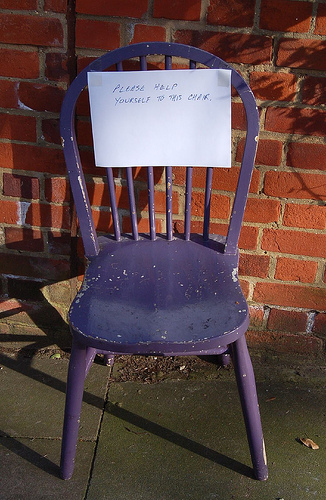 PLEASE HELP
YOURSELF TO THIS CHAIR.